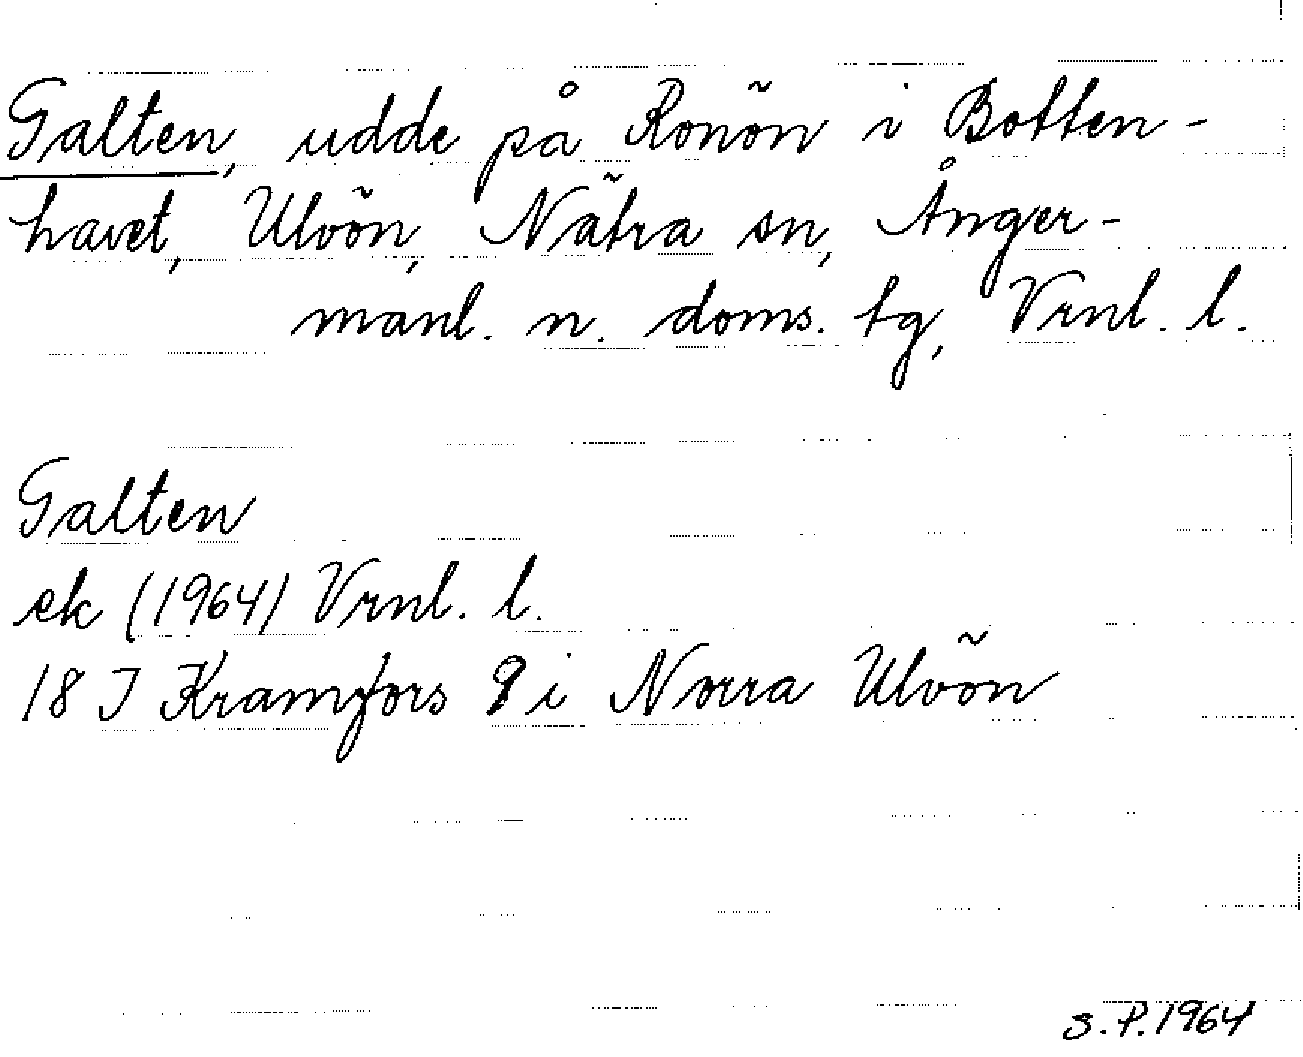 Galten, udde på Ronön i Botten-
havet, Ulvön, Nätra sn, Ånger-
manl. n. doms. tg, Vrnl. l.
Galten
ek (1964) Vrnl. l.
18 I Kramfors 9 i Norra Ulvön
S.P. 1964